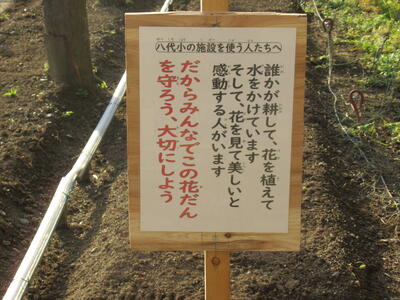 八代小の施設を使う人たちへ
誰かが耕して、花を植えて
水をかけています
そして、花を見て美しいと
感動する人がいます
だからみんなでこの花だん
を守ろう、大切にしよう